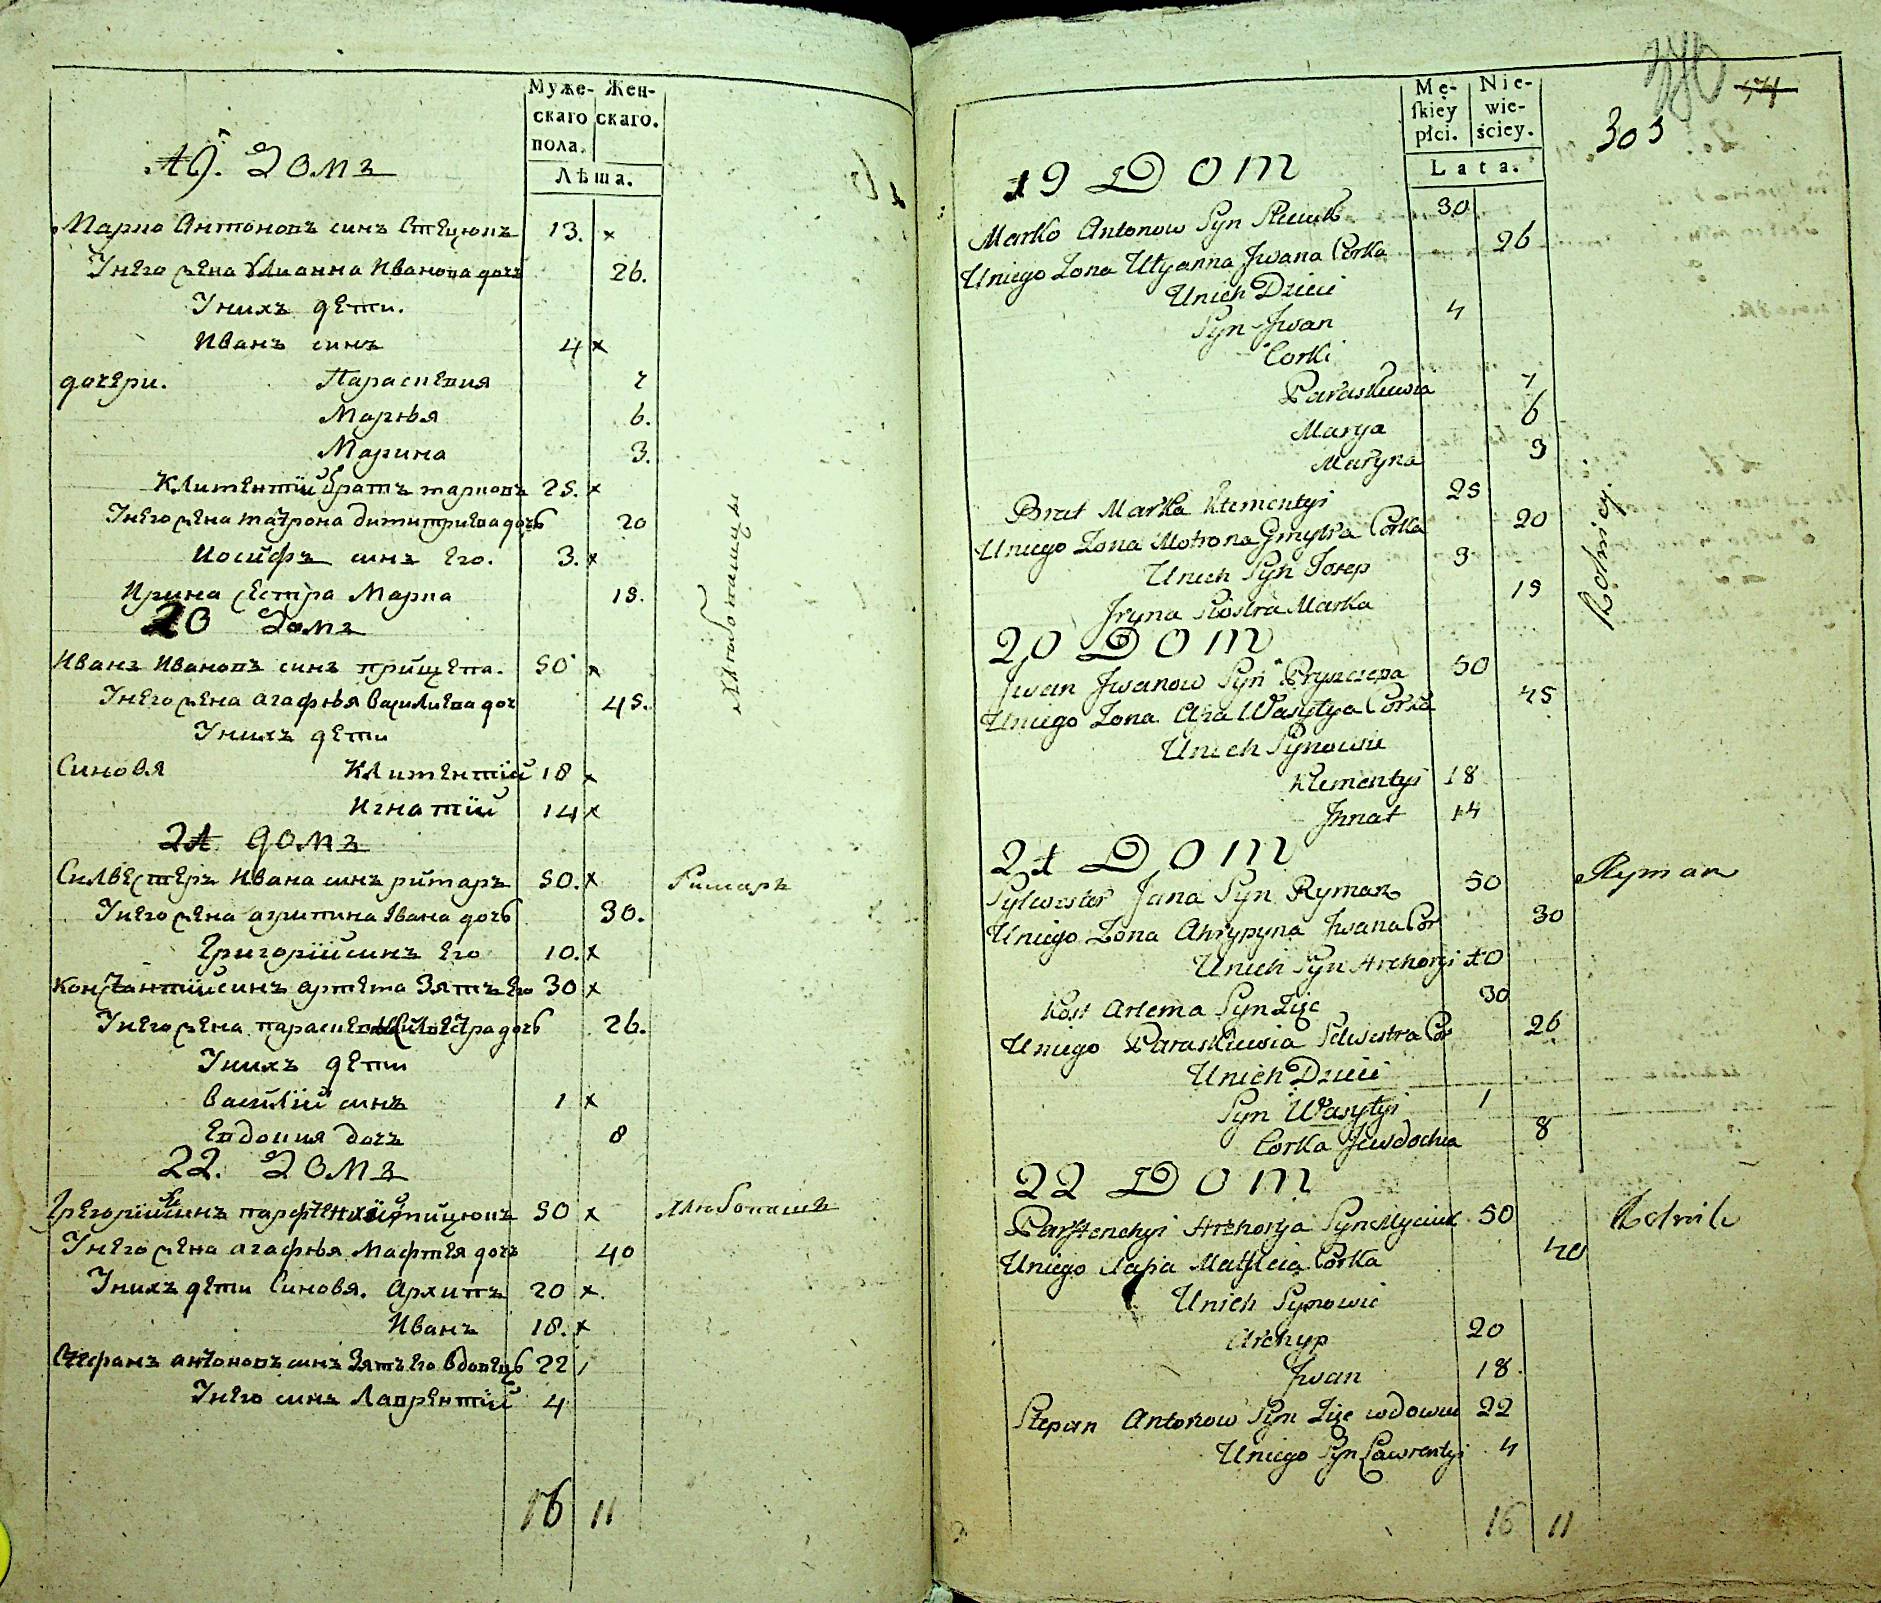 Муже- Жен-
скаго скаго.
пола.
Лѣта.
19. Домъ
Марко Антоновъ синъ Стецюкъ 13. x
Унего жена Улианна Иванова дочь 26.
Унихъ дети.
Иванъ синъ 4 x
дочери. Параскевия 7
Маръя 6.
Марина 3.
Климентий братъ марковъ 25. x
Унего жена матрона димитриева дочь 20
Иосифъ синъ Его. 3. x
Ирина сестра Марка 15.
хлѣбопашцы
20 Домъ
Иванъ Ивановъ синъ прищепа. 50 x
Унего жена агафѣя василиева доч 45.
Унихъ дети
Синовя Климентий 18 x
Игнатий 14 x
21 домъ
Силвестеръ Ивана синъ римаръ 50. x Римаръ
Унего жена агрипина Iвана дочь 30.
Григорий синъ Его 10. x
Константий синъ артема Зять Его 30 x
Унего жена параскевия Силвестра дочь 26.
Унихъ дети
василий синъ 1 x
Евдокия дочъ 8
22. Домъ
Грегорий синъ парфтений 50 x хлѣбопашецъ
Унего жена агафѣя Мафтея дочъ 40
Унихъ дети Синовя. Архипъ 20 x.
Иванъ 18. x
Стефанъ антоновъ синъ Зять его вдовецъ 22
Унего синъ Лаврентий 4
16 11
Mę- Nie-
ſkiey wie-
płci. ściey.
Lata.
74
303
19 Dom
Marko Antonow Syn 30
Uniego Zona Ulyanna Jwana Corka 26
Unich Dzieci
Syn Jwan 4
Corki
Paraskiewia 7
Marya 6
Maryna 3
Brat Marka Klementyi 25
Uniego Zona Motrona Dmytra Corka 20
Unich Syn Josep 3
Jryna Siostra Marka 15
Rolnicy.
20 Dom
Jwan Jwanow Syn Pryszczepa 50
Uniego Zona Wasylya Corka 45
Unich Synowie
Klementyi 18
Jhnat 14
21 Dom
Sylwester Jana Syn Rymarz 50 Rymarz
Uniego Zona Ahrypyna Jwana Cor 30
Unich Syn Hrehoryi 10
Kost Artema Syn Zięc 30
Uniego Paraskiewia Selwestra Cor 26
Unich Dzieci
Syn Wasylyi 1
Corka Jewdochia 8
22 Dom
Parftenchyi Hrehorya Syn 50 Rolnik
Uniego Mafteia Corka 40
Unich Synowie
Archyp 20
Jwan 18.
Stepan Antonow Syn Zięc wdowiec 22
Uniego Syn Lawrentyi 4
16 11